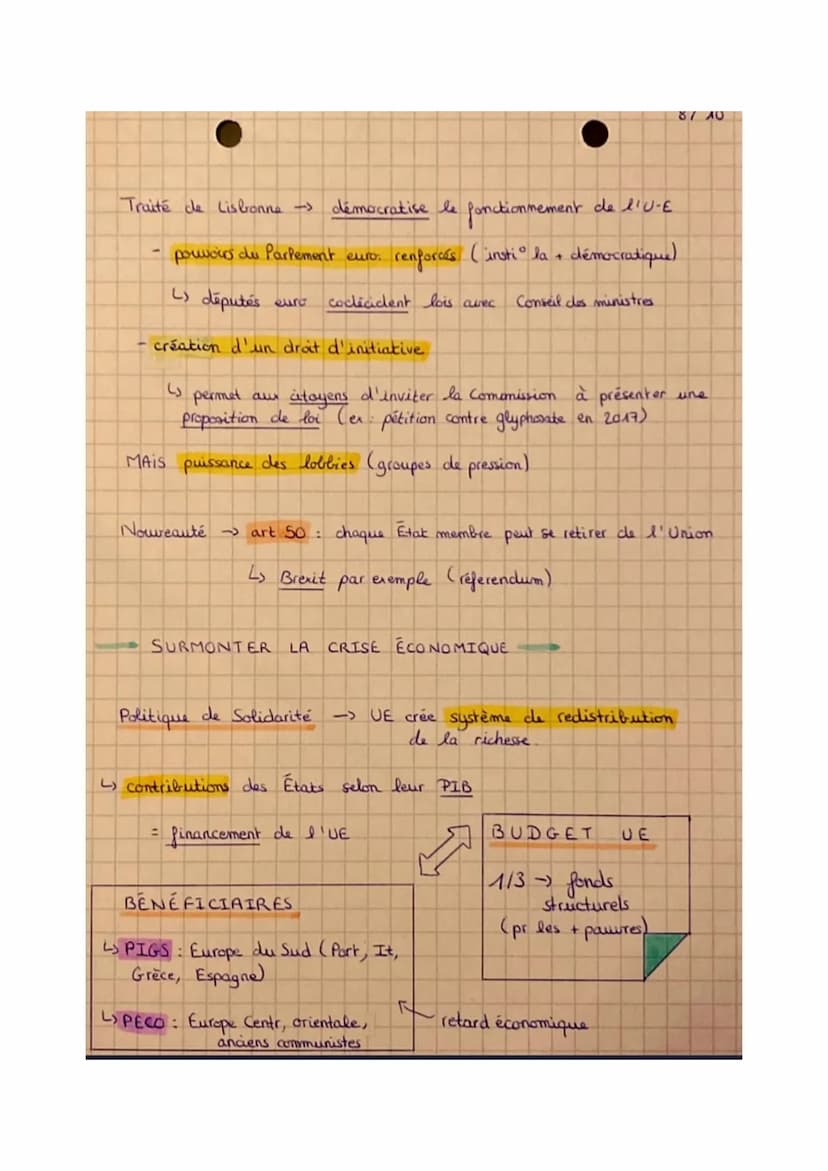 8/ 10
Traité de Lisbonne → démocratise le fonctionnement de l'U-E
- pouvoirs du Parlement euro. renforcés (insti° la + démocratique)
↳ députés euro codécident lois avec Conseil des ministres
- création d'un droit d'initiative
↳ permet aux citoyens d'inviter la Commission à présenter une
proposition de loi (ex : pétition contre glyphosate en 2017)
MAIS puissance des lobbies (groupes de pression)
Nouveauté → art 50 : chaque État membre peut se retirer de l'Union
↳ Brexit par exemple (réferendum)
SURMONTER LA CRISE ÉCONOMIQUE
Politique de Solidarité → UE crée système de redistribution
de la richesse.
↳ contributions des États selon leur PIB
= financement de l'UE
BUDGET UE
1/3 → fonds
structurels
(pr les + pauvres)
BÉNÉFICIAIRES
↳ PIGS : Europe du Sud (Port, It,
Grèce, Espagne)
↳ PECO : Europe Centr, orientale,
anciens communistes
retard économique